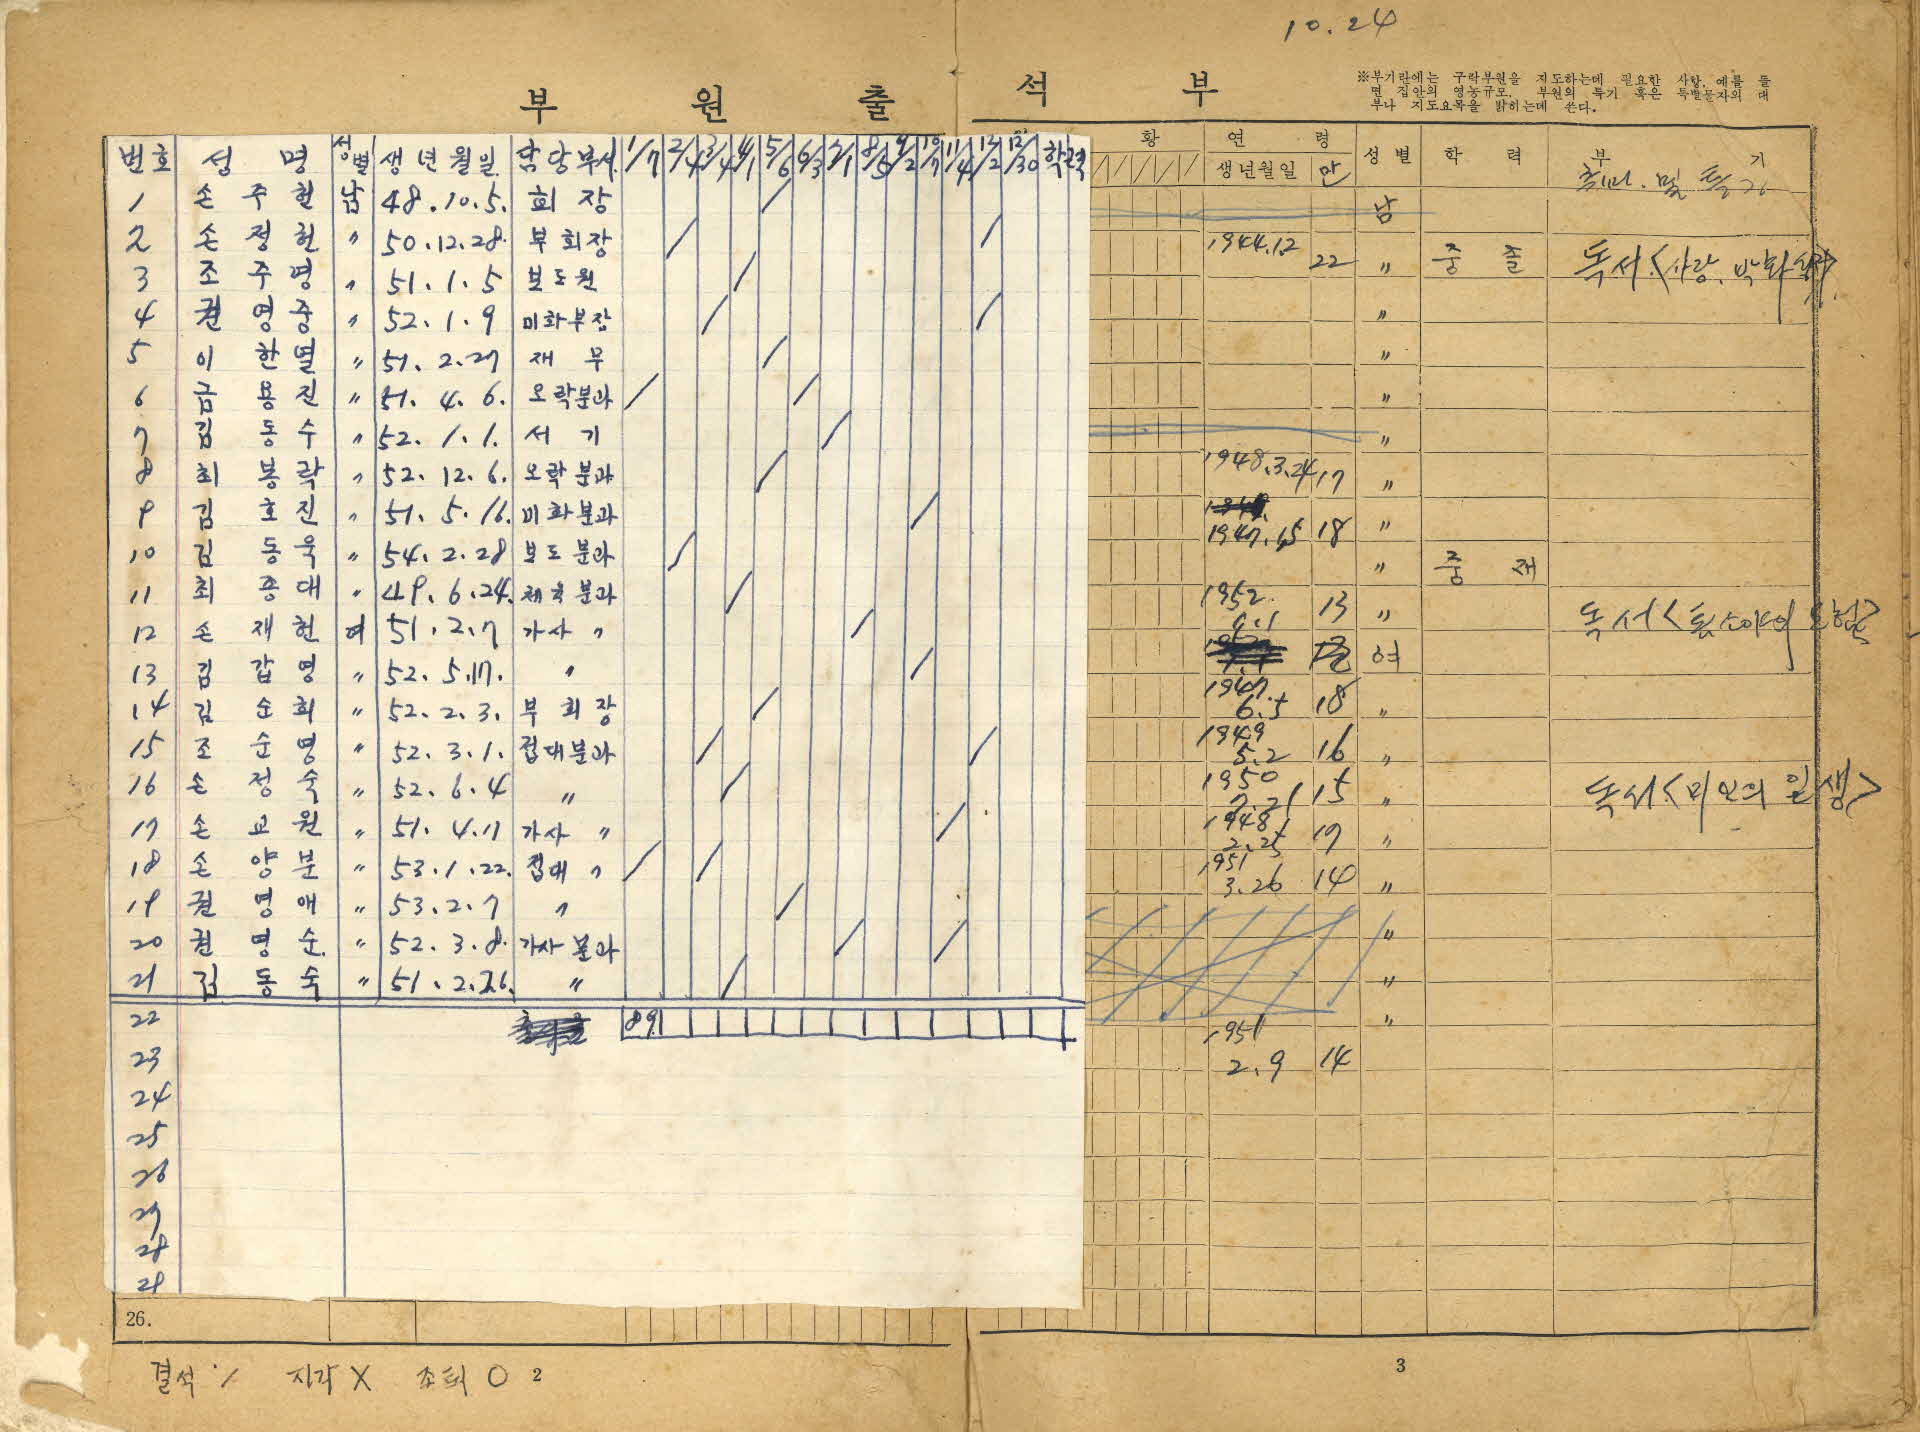 10.24
부 원 출 석 부
※부기란에는 구락부원을 지도하는데 필요한 사항, 예를 들
면 집안의 영농규모, 부원의 특기 혹은 특별문자의 대
부나 지도요목을 밝히는데 쓴다.
번호 성 명 성별 생년월일 담당부서 1/7 2/4 3/4 4/1 5/6 6/3 7/1 8/5 9/2 10/7 11/4 12/2 12/30 학력
1 손주헌 남 48.10.5. 회장
2 손정헌 〃 50.12.28. 부회장
3 조주영 〃 51.1.5 보도원
4 권영중 〃 52.1.9 미화부장
5 이한열 〃 51.2.27 재무
6 금용진 〃 51.4.6. 오락분과
7 김동수 〃 52.1.1. 서기
8 최봉락 〃 52.12.6. 오락분과
9 김호진 〃 51.5.16. 미화분과
10 김동욱 〃 54.2.28 보도분과
11 최종대 〃 49.6.24. 체육분과
12 손재헌 여 51.2.7 가사 〃
13 김갑영 〃 52.5.17. 〃
14 김순희 〃 52.2.3. 부회장
15 조순영 〃 52.3.1. 접대분과
16 손정숙 〃 52.6.4 〃
17 손교원 〃 51.4.17 가사 〃
18 손양분 〃 53.1.22. 접대 〃
19 권영애 〃 53.2.7 〃
20 권영순. 〃 52.3.8. 가사분과
21 김동숙 〃 51.2.26. 〃
22 89
23
24
25
26
27
28
29
26.
결석 / 지각 X 조퇴 O 2
황 연 령 성별 학 력 부 기
생년월일 만 취미. 및 특기
남
1944.12 22 〃 중 졸 독서<사랑.
〃
〃
〃
〃
1948.3.24 17 〃
1947. 18 〃
〃 중 재
1952. 13 〃 독서<
여
1947. 6.5 18 〃
1949 5.2 16 〃
1950 7.21 15 〃 독서<미인의 일생>
1948 2.25 17 〃
1951 3.26 14 〃
〃
〃
〃
1951 2.9 14
3